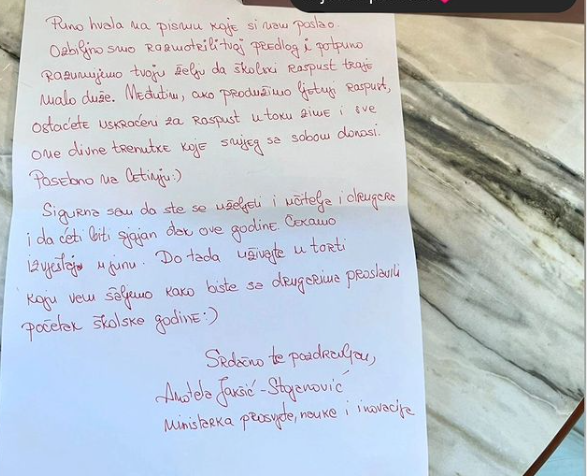 Puno hvala na pismu koje si nam poslao.
Ozbiljno smo razmotrili tvoj predlog i potpuno
razumijemo tvoju želju da školski raspust traje
malo duže. Međutim, ako produžimo ljetnji raspust,
ostaćete uskraćeni za raspust u toku zime i sve
one divne trenutke koje snijeg sa sobom donosi.
Posebno na Cetinju:)
Sigurna sam da ste se uželjeli i učitelja i drugara
i da ćeš biti sjajan đak ove godine. Čekamo
izvještaj u junu. Do tada uživajte u torti
koju vam šaljemo kako biste sa drugarima proslavili
početak školske godine:)
Srdačno te pozdravljam,
Anđela Jakšić-Stojanović
Ministarka prosvjete, nauke i inovacija